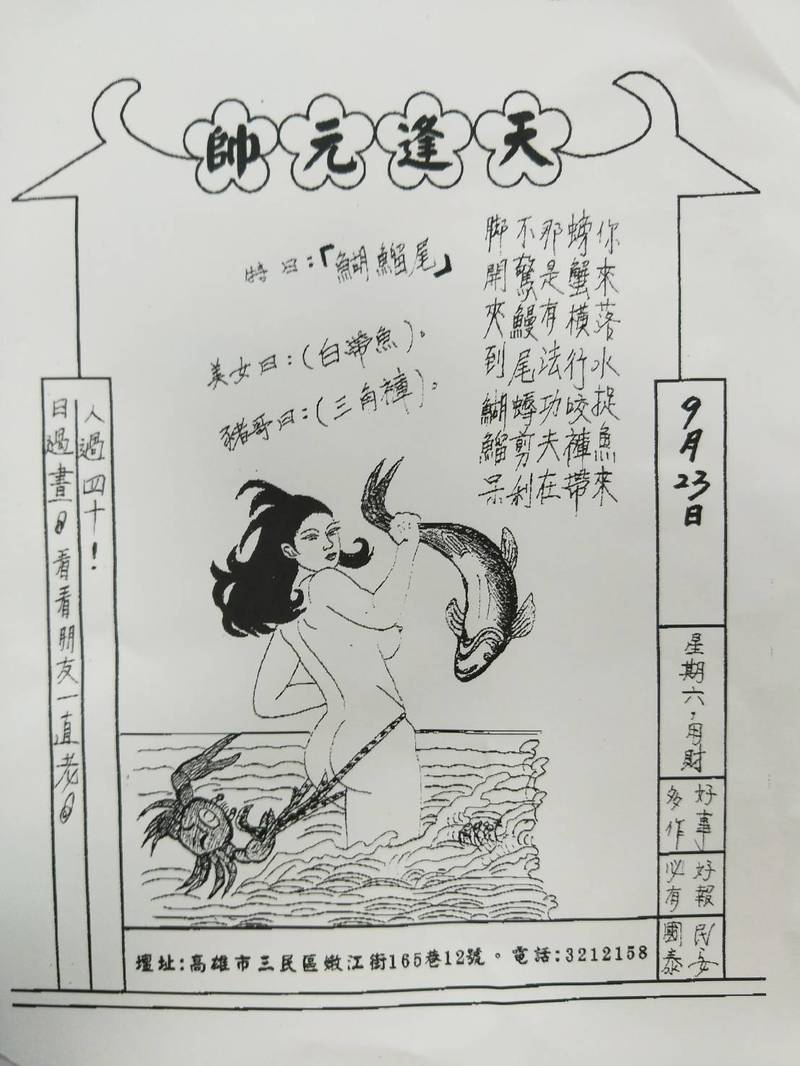 天逢元帥
你來落水捉魚來
蝳蟹橫行咬褲帶
那是有法功夫在
不驚鰻尾蟳剪利
脚開夾到鰗鰡呆
特曰：「鰗鰡尾」
美女曰：（白帶魚）。
豬哥曰：（三角褲）。
9月23日
星期六，用財
好事
多作
好報
必有
民安
國泰
人過四十！
日過晝。看看朋友一直老。
壇址：高雄市三民區嫩江街165巷12號。電話：3212158